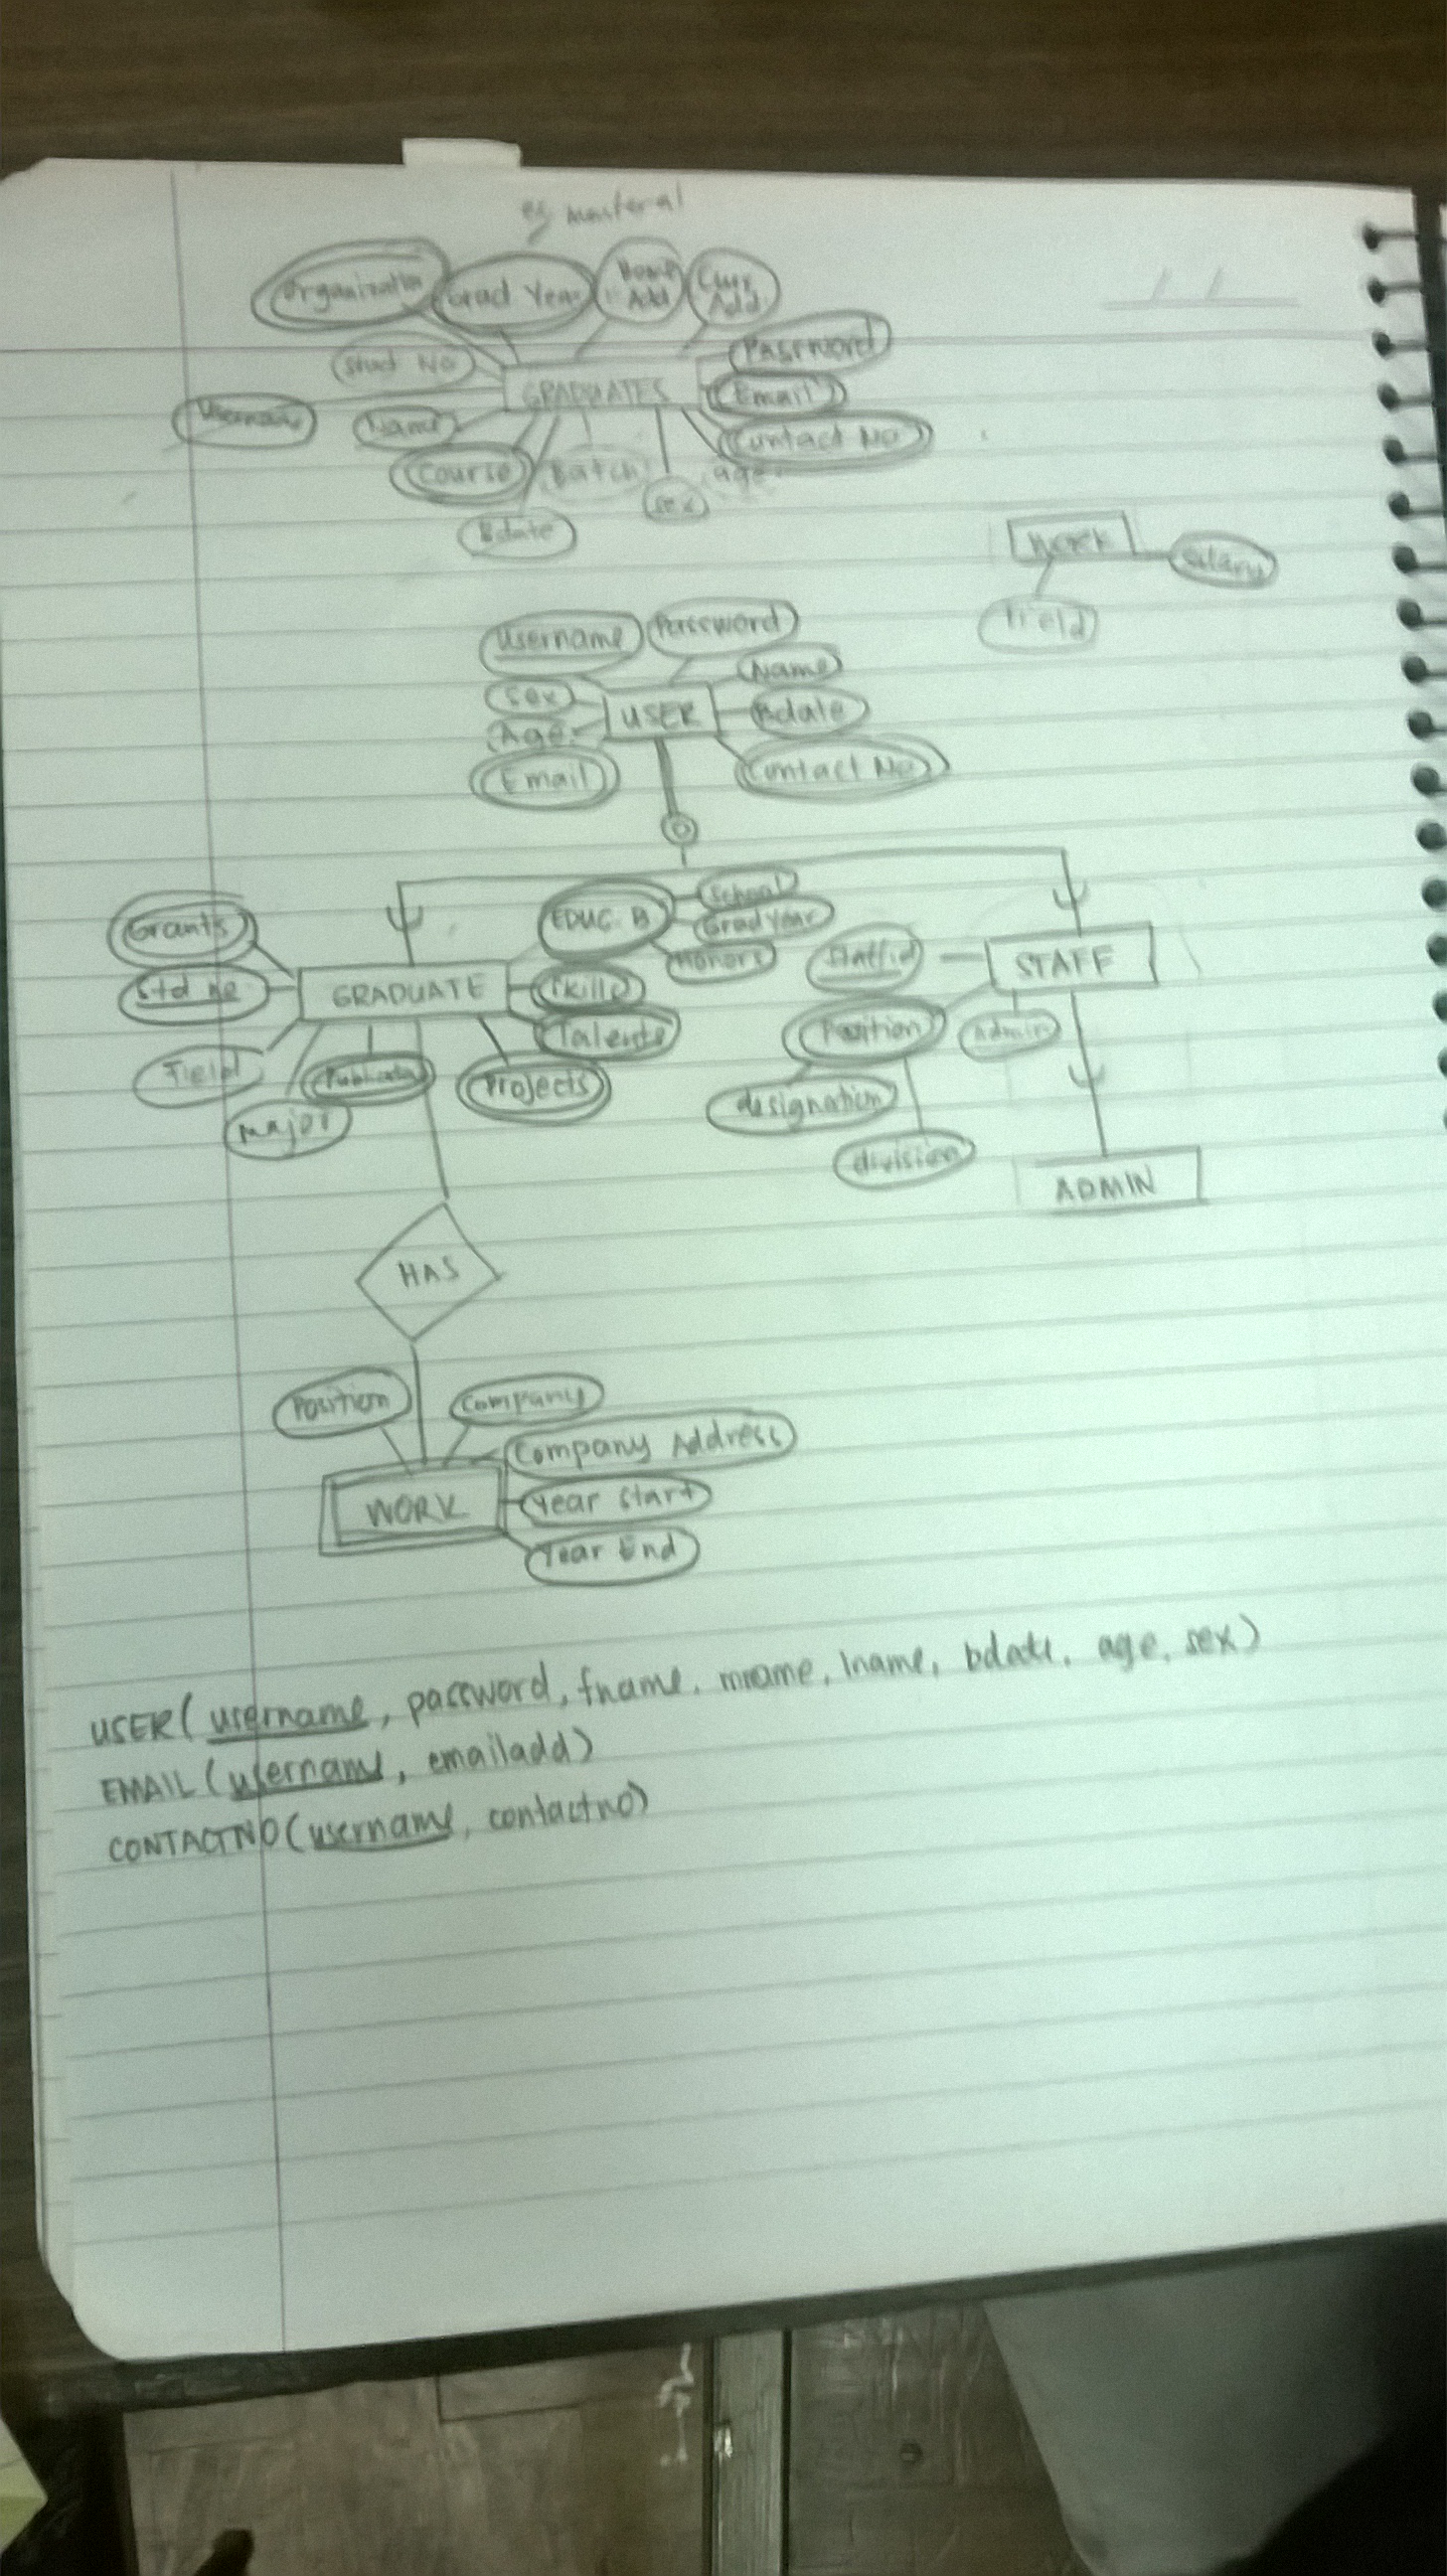 eg masteral
Organization Grad Year Home Add Curr Add
Stud No Password
GRADUATES Email
Username Name Contact No
Course Batch age
Sex
Bdate
WORK Salary
Field
Username Password
Name
Sex USER Bdate
Age
Email Contact No
School
Grants EDUC. B Grad Year
Honors Staffid STAFF
Std no GRADUATE Skills
Talents Position Admin
Field Projects
major designation
division
ADMIN
HAS
Position Company
Company Address
WORK Year Start
Year End
USER(username, password, fname, mname, lname, bdate, age, sex)
EMAIL(username, emailadd)
CONTACTNO(username, contactno)